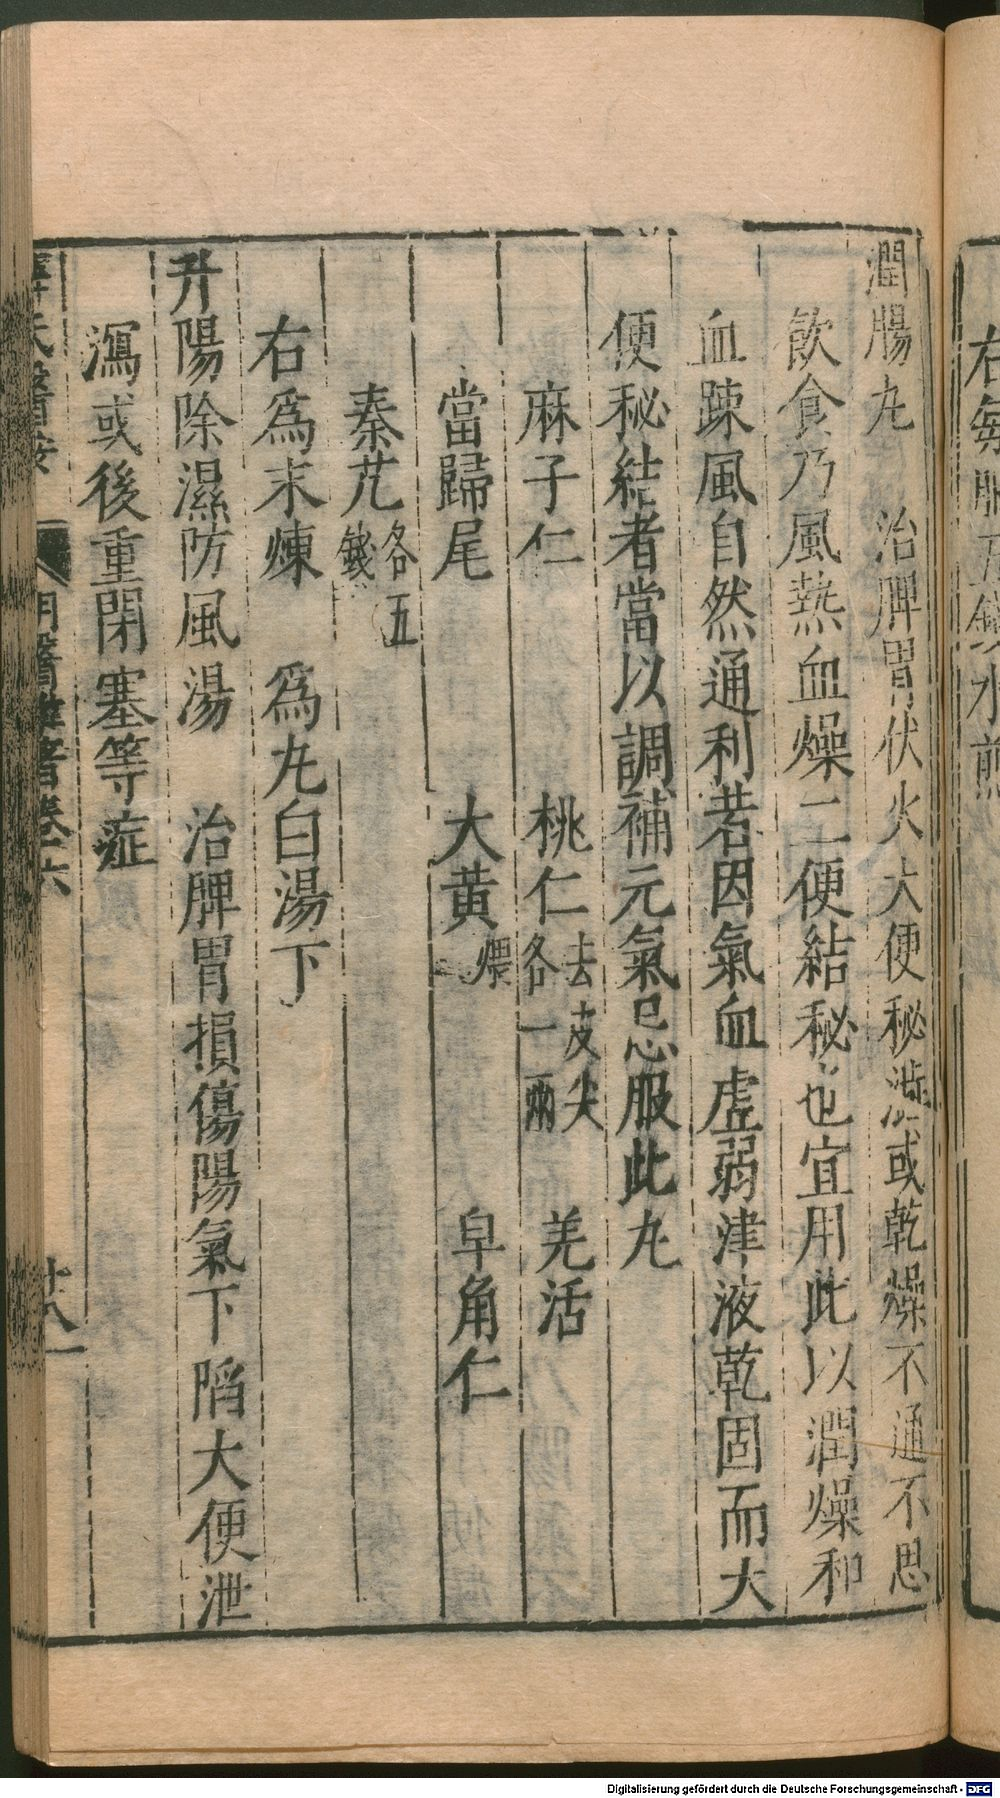 右每服五錢水煎
潤腸丸　治脾胃伏火大便秘澁或乾燥不通不思
飲食乃風熱血燥二便結秘也宜用此以潤燥和
血踈風自然通利若因氣血虛弱津液乾固而大
便秘結者當以調補元氣忌服此丸
麻子仁　桃仁去皮尖各一兩　羌活
當歸尾　大黃煨　皁角仁
秦艽各五錢
右爲末煉　爲丸白湯下
升陽除濕防風湯　治脾胃損傷陽氣下陷大便泄
瀉或後重閉塞等症
薛氏醫按　明醫雜著卷六　廿八
Digitalisierung gefördert durch die Deutsche Forschungsgemeinschaft - DFG